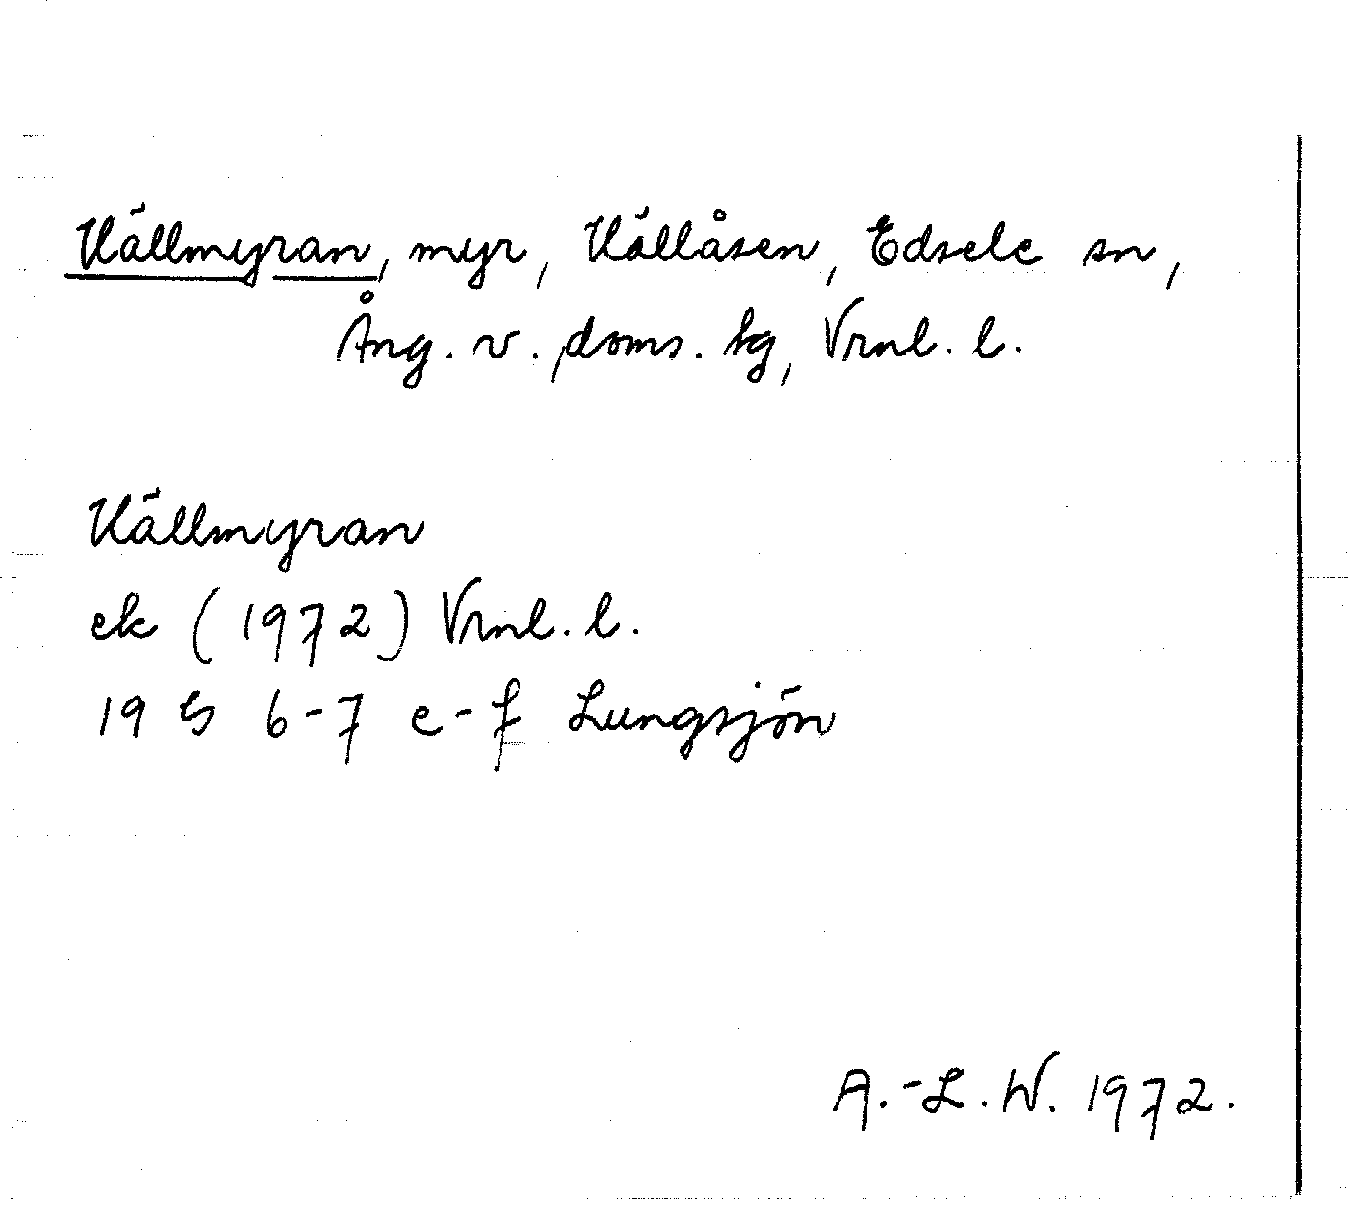 Hällmyran, myr, Hällåsen, Edsele sn,
Ång. v. doms. tg, Vrnl. l.
Hällmyran
ek (1972) Vrnl. l.
19 G 6-7 e-f Lungsjön
A.-L. W. 1972.